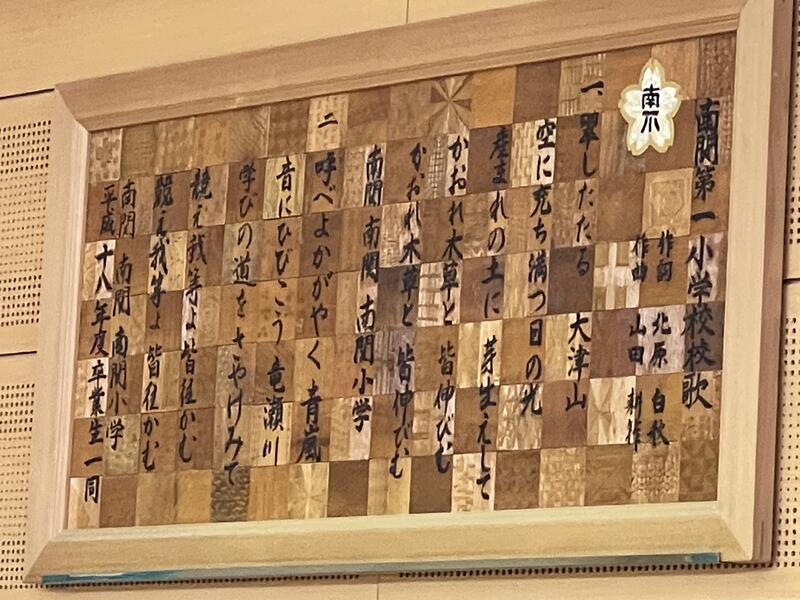 南関第一小学校校歌
作詞 北原 白秋
作曲 山田 耕作
南
一、翠したたる 大津山
空に充ち満つ日の光
産まれの土に 芽生えして
かおれ木草と 皆伸びむ
かおれ木草と 皆伸びむ
南関 南関 南関小学
二 呼べよかがやく 青嵐
音にひびこう 竜瀬川
学びの道を さやけみて
競え我等よ 皆往かむ
競え我等よ 皆往かむ
南関 南関 南関小学
平成 十八年度 卒業生一同